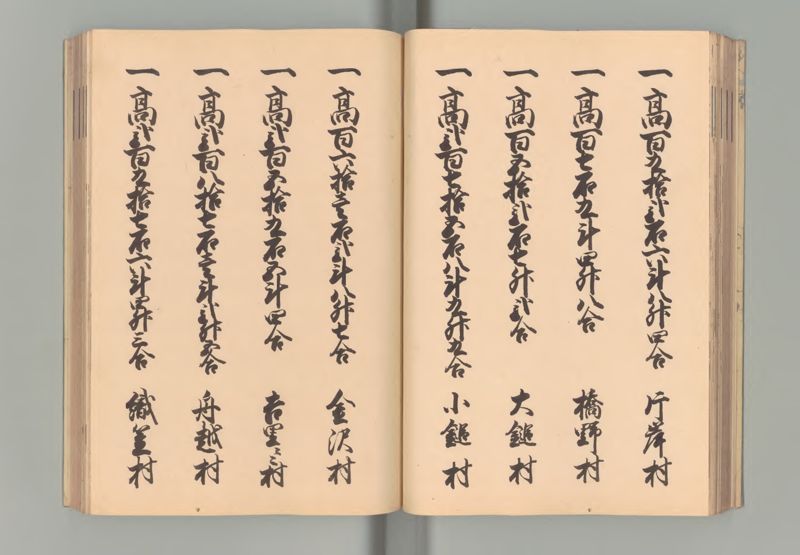 一高百九拾弐石六斗八升四合 片岸村
一高百七石九斗四升八合 橋野村
一高百五拾弐石七升弐合 大鎚村
一高弐百七拾五石八斗九升九合 小鎚村
一高百六拾壱石弐斗八升七合 金沢村
一高弐百五拾九石五斗四合 吉里々村
一高弐百八拾七石壱斗弐升五合 舟越村
一高弐百九拾七石六斗四升三合 織笠村